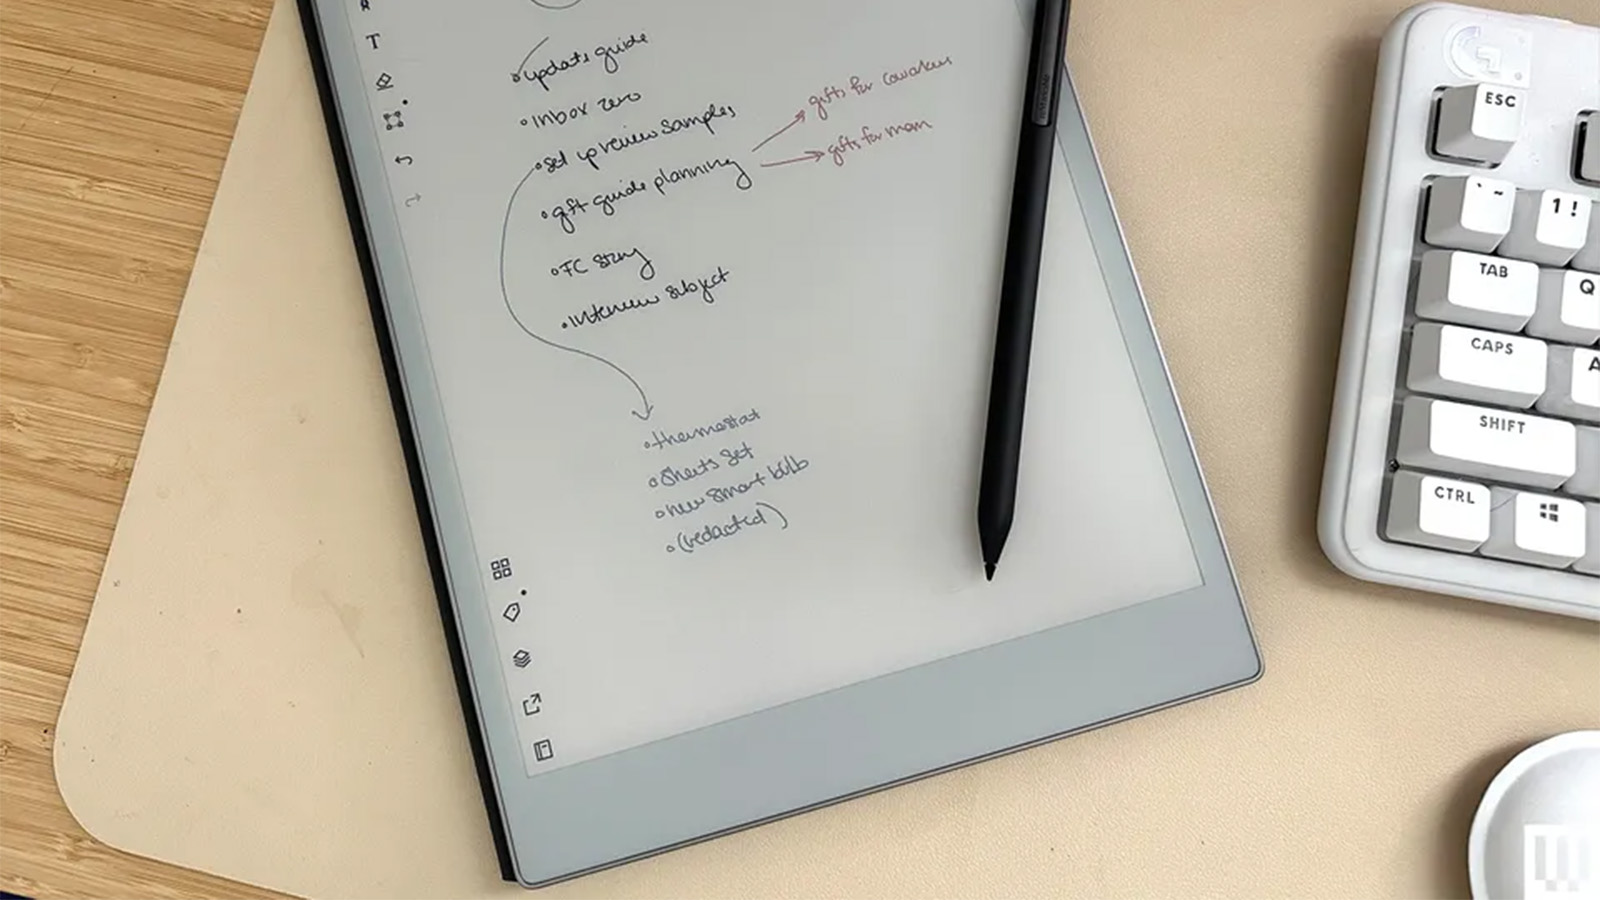 T
update guide
inbox zero
set up review samples
gift guide planning
gifts for coworkers
gifts for mom
FC story
interview subject
thermostat
sheets set
new smart bulb
(redacted)
remarkable
G
ESC
` ~
1 !
TAB
Q
CAPS
A
SHIFT
CTRL